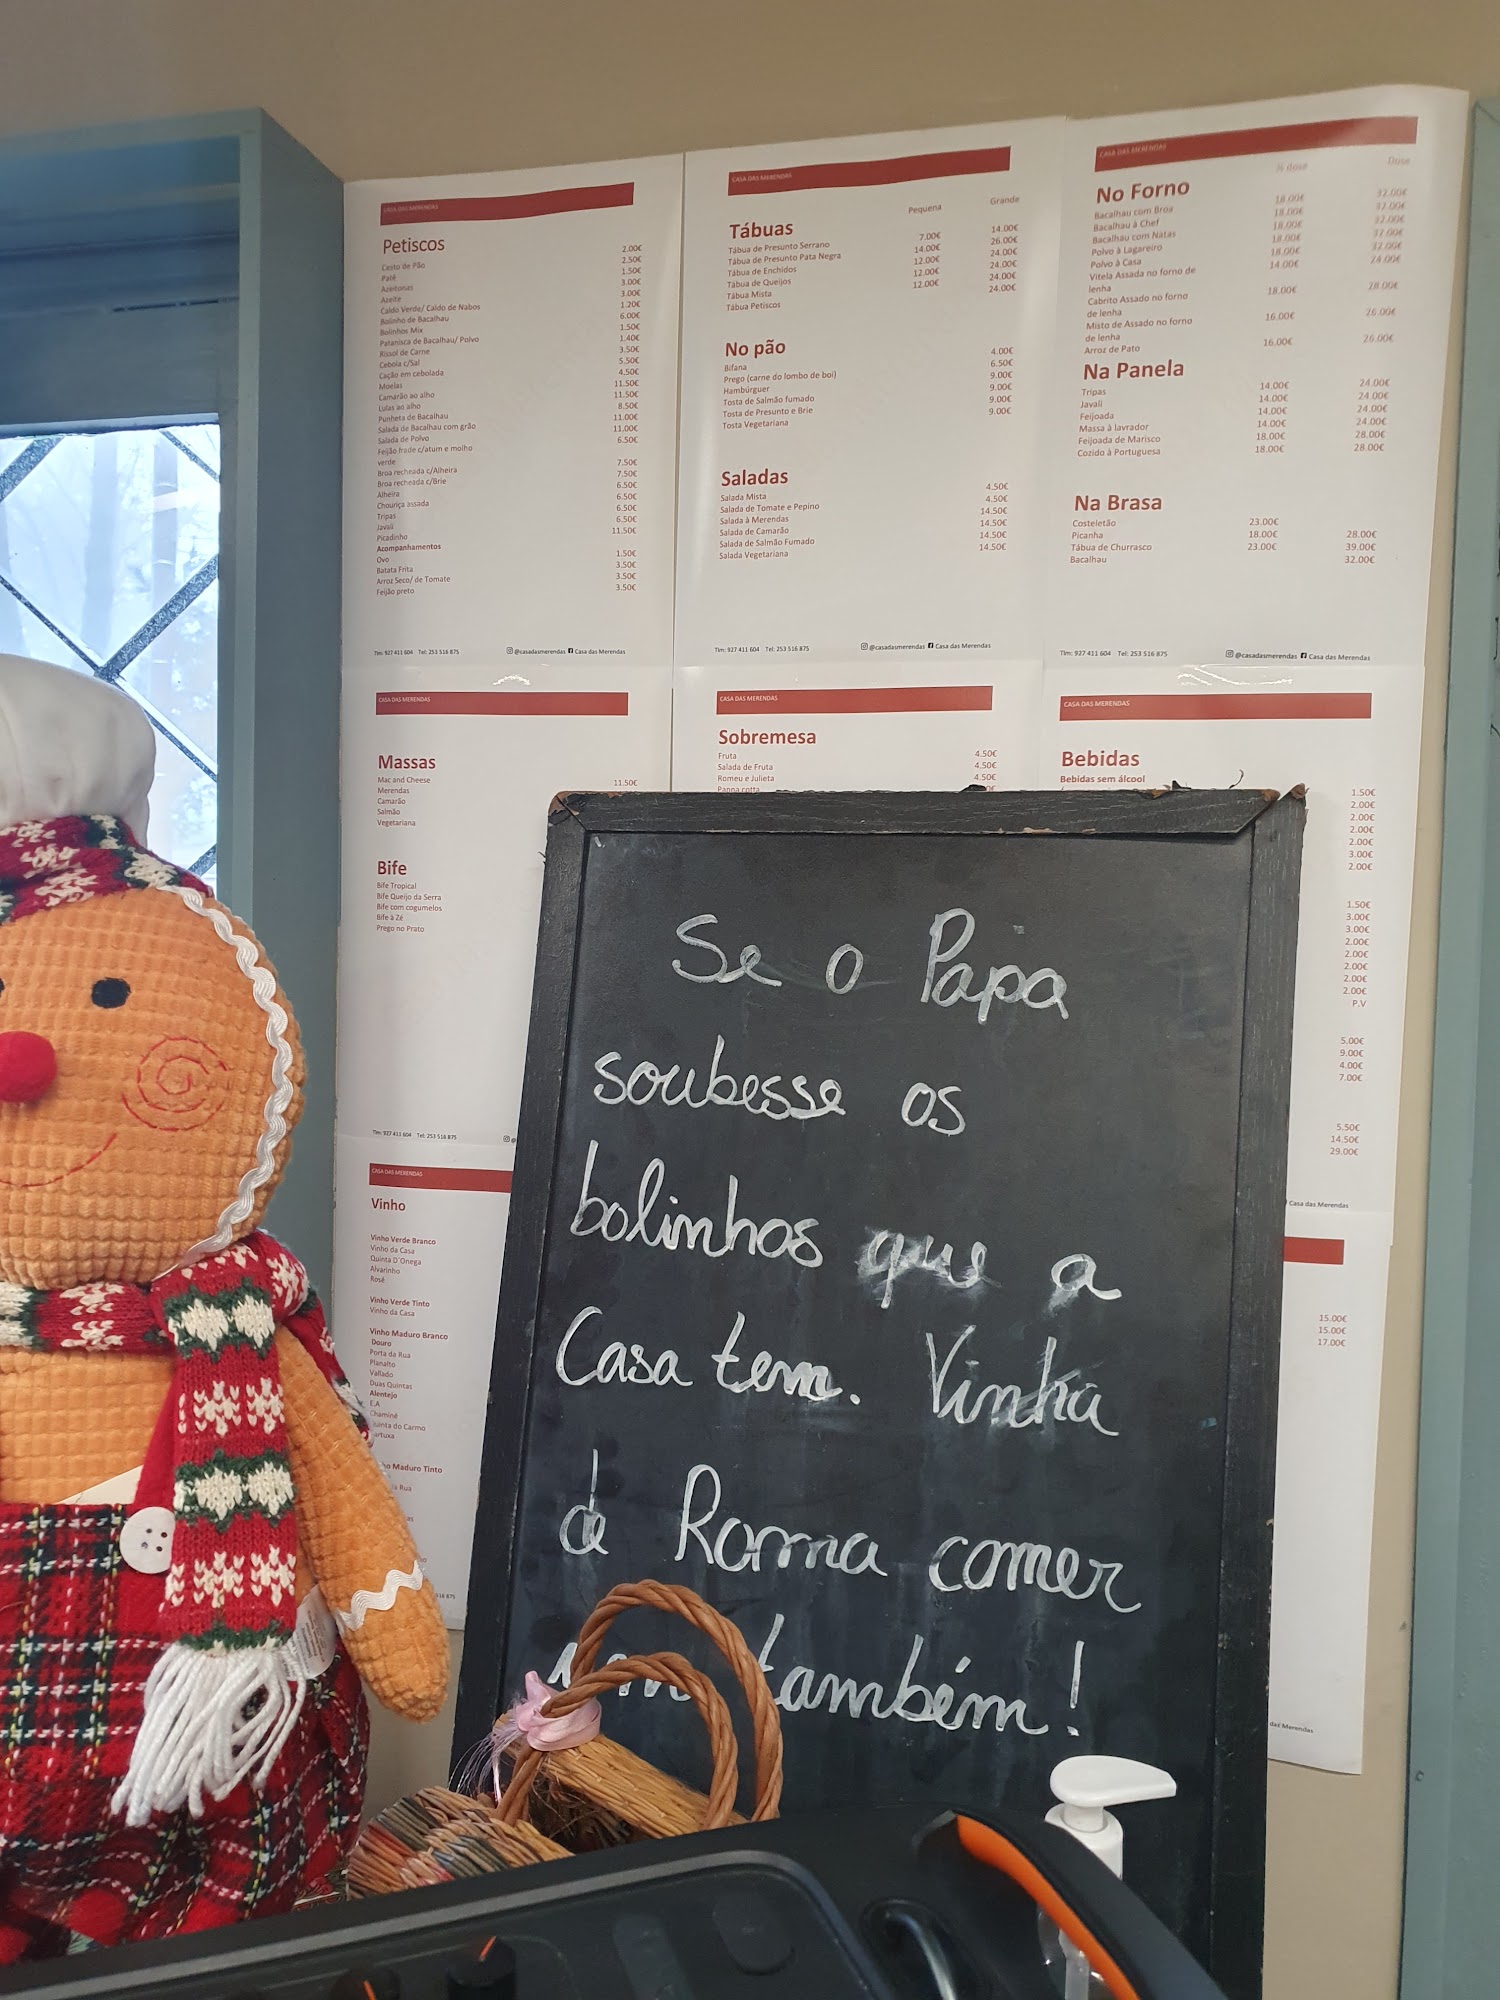 CASA DAS MERENDAS
Petiscos
2.00€
Cesto de Pão 2.50€
Patê 1.50€
Azeitonas 3.00€
Azeite 3.00€
Caldo Verde/ Caldo de Nabos 1.20€
Bolinho de Bacalhau 6.00€
Bolinhos Mix 1.50€
Patanisca de Bacalhau/ Polvo 1.40€
Rissol de Carne 3.50€
Cebola c/Sal 5.50€
Cação em cebolada 4.50€
Moelas 11.50€
Camarão ao alho 11.50€
Lulas ao alho 8.50€
Punheta de Bacalhau 11.00€
Salada de Bacalhau com grão 11.00€
Salada de Polvo 6.50€
Feijão frade c/atum e molho
verde 7.50€
Broa recheada c/Alheira 7.50€
Broa recheada c/Brie 6.50€
Alheira 6.50€
Chouriça assada 6.50€
Tripas 6.50€
Javali 11.50€
Picadinho
Acompanhamentos
Ovo 1.50€
Batata Frita 3.50€
Arroz Seco/ de Tomate 3.50€
Feijão preto 3.50€
Tlm: 927 411 604 Tel: 253 516 875 @casadasmerendas Casa das Merendas
CASA DAS MERENDAS
Pequena Grande
Tábuas
Tábua de Presunto Serrano 7.00€ 14.00€
Tábua de Presunto Pata Negra 14.00€ 26.00€
Tábua de Enchidos 12.00€ 24.00€
Tábua de Queijos 12.00€ 24.00€
Tábua Mista 12.00€ 24.00€
Tábua Petiscos 24.00€
No pão
Bifana 4.00€
Prego (carne do lombo de boi) 6.50€
Hambúrguer 9.00€
Tosta de Salmão fumado 9.00€
Tosta de Presunto e Brie 9.00€
Tosta Vegetariana 9.00€
Saladas
Salada Mista 4.50€
Salada de Tomate e Pepino 4.50€
Salada à Merendas 14.50€
Salada de Camarão 14.50€
Salada de Salmão Fumado 14.50€
Salada Vegetariana 14.50€
Tlm: 927 411 604 Tel: 253 516 875 @casadasmerendas Casa das Merendas
CASA DAS MERENDAS
½ dose Dose
No Forno
Bacalhau com Broa 18.00€ 32.00€
Bacalhau à Chef 18.00€ 32.00€
Bacalhau com Natas 18.00€ 32.00€
Polvo à Lagareiro 18.00€ 32.00€
Polvo à Casa 18.00€ 32.00€
Vitela Assada no forno de 14.00€ 24.00€
lenha
Cabrito Assado no forno 18.00€ 28.00€
de lenha
Misto de Assado no forno 16.00€ 26.00€
de lenha
Arroz de Pato 16.00€ 26.00€
Na Panela
Tripas 14.00€ 24.00€
Javali 14.00€ 24.00€
Feijoada 14.00€ 24.00€
Massa à lavrador 14.00€ 24.00€
Feijoada de Marisco 18.00€ 28.00€
Cozido à Portuguesa 18.00€ 28.00€
Na Brasa
Costeletão 23.00€
Picanha 18.00€ 28.00€
Tábua de Churrasco 23.00€ 39.00€
Bacalhau 32.00€
Tlm: 927 411 604 Tel: 253 516 875 @casadasmerendas Casa das Merendas
CASA DAS MERENDAS
Massas
Mac and Cheese 11.50€
Merendas
Camarão
Salmão
Vegetariana
Bife
Bife Tropical
Bife Queijo da Serra
Bife com cogumelos
Bife à Zé
Prego no Prato
Tlm: 927 411 604 Tel: 253 516 875
CASA DAS MERENDAS
Sobremesa
Fruta 4.50€
Salada de Fruta 4.50€
Romeu e Julieta 4.50€
Panna cotta
CASA DAS MERENDAS
Bebidas
Bebidas sem álcool
1.50€
2.00€
2.00€
2.00€
2.00€
3.00€
2.00€
1.50€
3.00€
3.00€
2.00€
2.00€
2.00€
2.00€
2.00€
P.V
5.00€
9.00€
4.00€
7.00€
5.50€
14.50€
29.00€
Casa das Merendas
CASA DAS MERENDAS
Vinho
Vinho Verde Branco
Vinho da Casa
Quinta D'Onega
Alvarinho
Rosé
Vinho Verde Tinto
Vinho da Casa
Vinho Maduro Branco
Douro
Porta da Rua
Planalto
Vallado
Duas Quintas
Alentejo
E.A
Chaminé
do Carmo
Maduro Tinto
Rua
516 875
15.00€
15.00€
17.00€
das Merendas
Se o Papa
soubesse os
bolinhos que a
Casa tem. Vinha
de Roma comer
também!